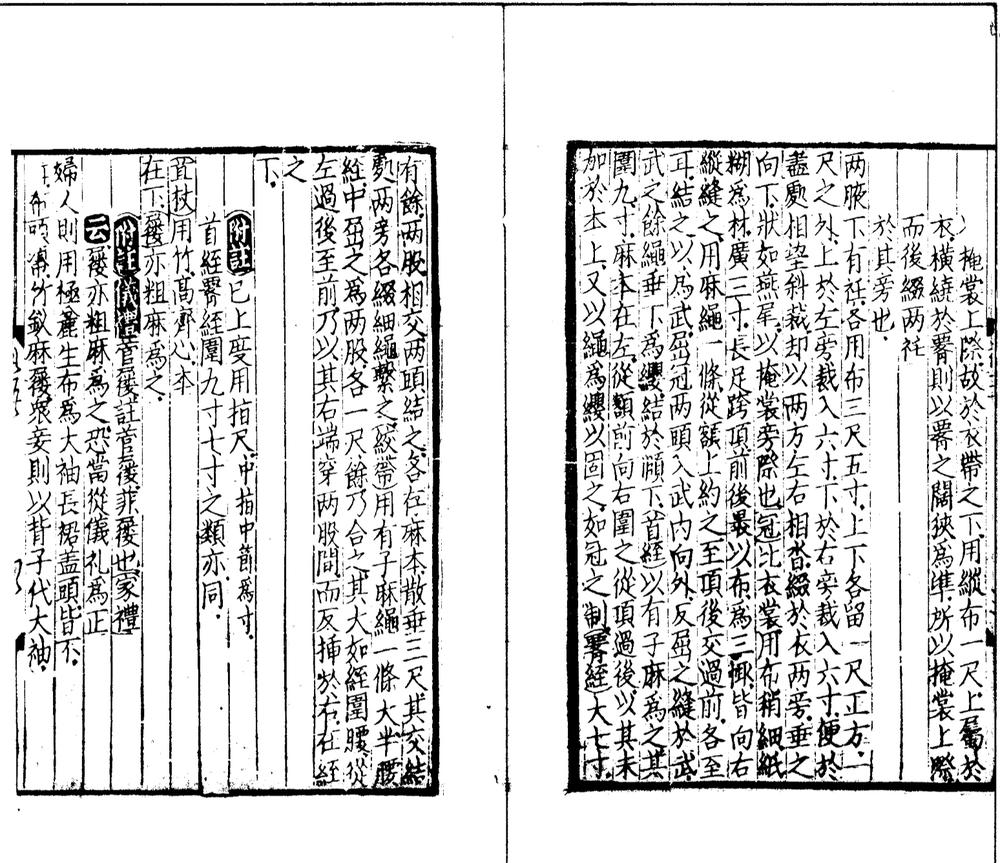 掩裳上際故於衣帶之下用縱布一尺上屬於
衣橫繞於䙝則以䙝之闊狹為準所以掩裳上際
而後綴两衽
於其旁也
两腋下有衽各用布三尺五寸上下各留一尺正方一
尺之外上於左旁裁入六寸下於右旁裁入六寸便於
盡處相望斜裁却以两方左右相沓綴於衣两旁垂之
向下狀如燕尾以掩裳旁際也冠比衣裳用布稍細紙
糊為材廣三寸長足跨頂前後裹以布為三㡇皆向右
縱縫之用麻繩一條從額上約之至頂後交過前各至
耳結之以為武屈冠两頭入武內向外反屈之縫於武
武之餘繩垂下為纓結於頤下首絰以有子麻為之其
圍九寸麻本在左從額前向右圍之從項過後以其末
加於本上又以繩為纓以固之如冠之制䙝絰大七寸
有餘两股相交两頭結之各存麻本散垂三尺其交結
處两旁各綴細繩繫之絞帶用有子麻繩一條大半腰
絰中屈之為两股各一尺餘乃合之其大如絰圍腰從
左過後至前乃以其右端穿两股間而反揷於右在絰
之
下
附註已上度用指尺中指中節為寸
首絰䙝絰圍九寸七寸之類亦同
苴杖用竹高齊心本
在下屨亦粗麻為之
附註儀禮菅屨註菅屨菲屨也家禮
云屨亦粗麻為之恐當從儀礼為正
婦人則用極麤生布為大袖長裙盖頭皆不
布頭㡇竹釵麻屨衆妾則以背子代大袖